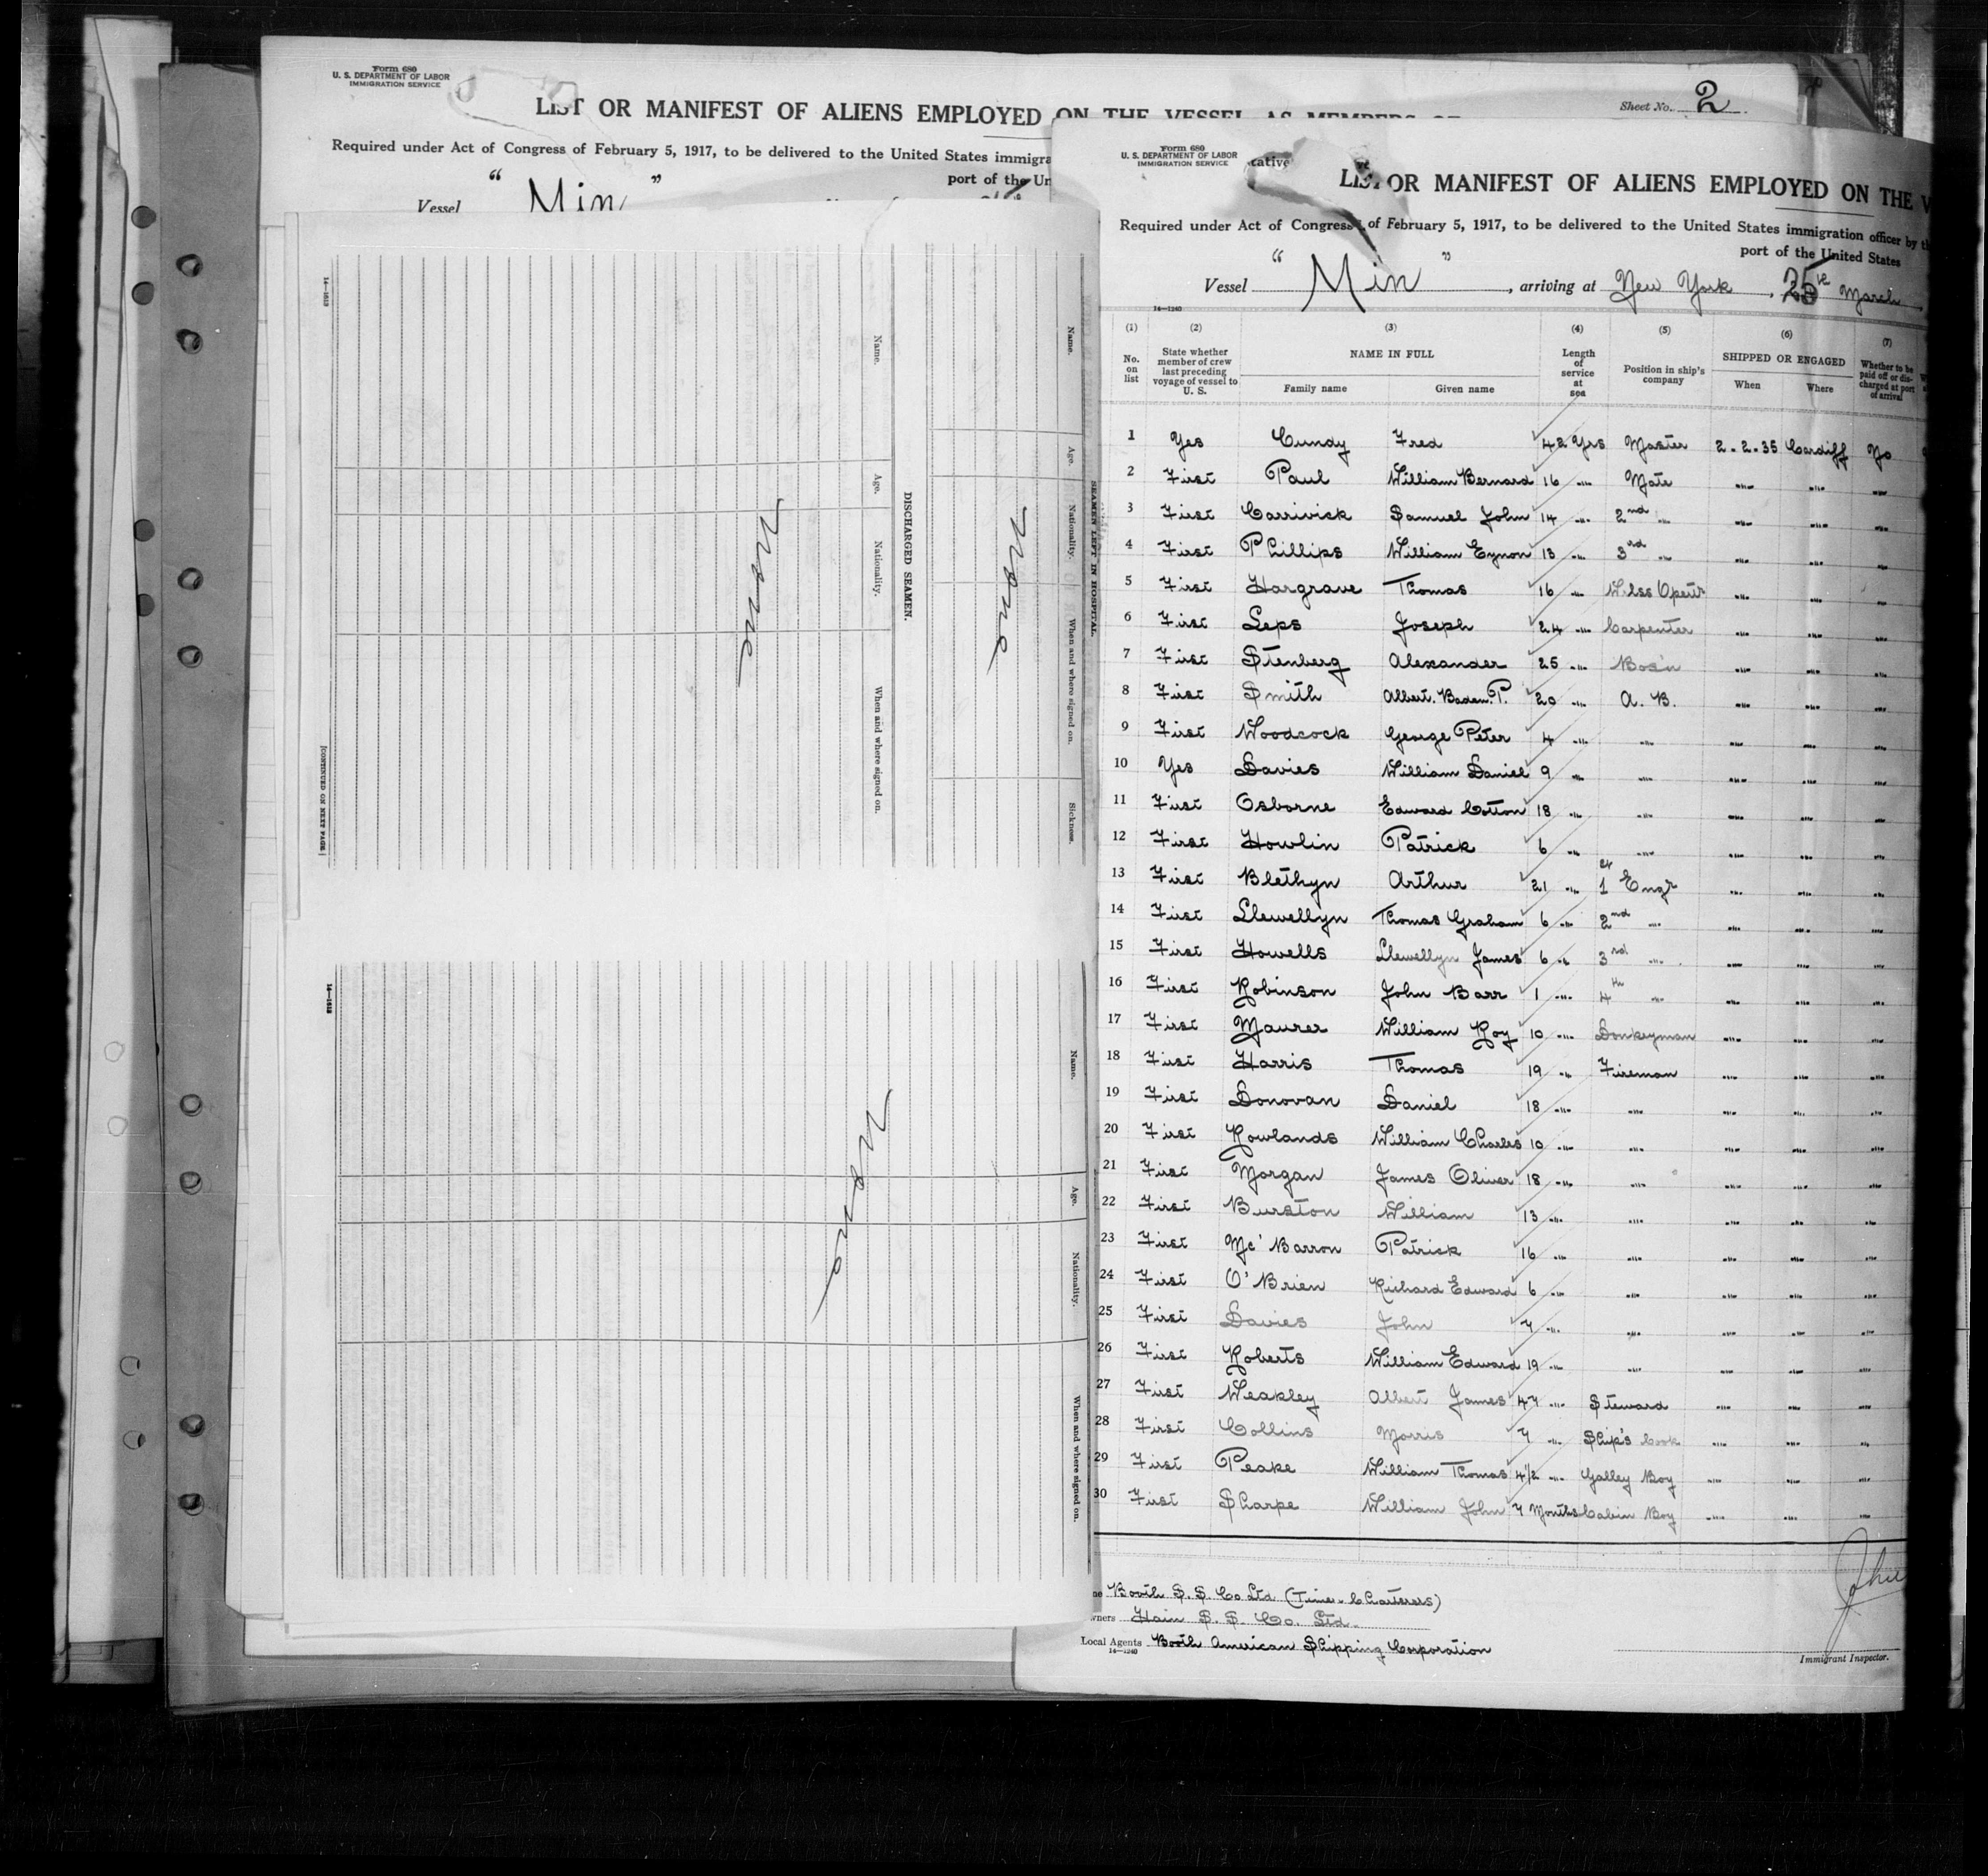 Form 680
U. S. DEPARTMENT OF LABOR
IMMIGRATION SERVICE
Sheet No. 2
LIST OR MANIFEST OF ALIENS EMPLOYED ON THE VESSEL AS MEMBERS
Required under Act of Congress of February 5, 1917, to be delivered to the United States immigra
port of the Un
Vessel " Min "
14—1313
Name.
Age.
Nationality.
When and where signed on.
Sickness.
None
SEAMEN LEFT IN HOSPITAL.
DISCHARGED SEAMEN.
Name.
Age.
Nationality.
When and where signed on.
None
[CONTINUED ON NEXT PAGE.]
14—1313
Name.
Age.
Nationality.
When and where signed on.
None
Form 680
U. S. DEPARTMENT OF LABOR
IMMIGRATION SERVICE
tative
LIST OR MANIFEST OF ALIENS EMPLOYED ON THE V
Required under Act of Congress of February 5, 1917, to be delivered to the United States immigration officer by th
port of the United States
Vessel " Min " , arriving at New York , 25th March
14—1240
(1) (2) (3) (4) (5) (6) (7)
No. on list State whether member of crew last preceding voyage of vessel to U. S. NAME IN FULL Length of service at sea Position in ship's company SHIPPED OR ENGAGED Whether to be paid off or discharged at port of arrival
Family name Given name When Where
1 Yes Cundy Fred 42 Yrs Master 2-2-35 Cardiff No
2 First Paul William Bernard 16 " Mate " " "
3 First Carrivick Samuel John 14 " 2nd " " " "
4 First Phillips William Eynon 13 " 3rd " " " "
5 First Hargrave Thomas 16 " " " "
6 First Leps Joseph 24 " Carpenter " " "
7 First Stenberg Alexander 25 " Bos'n " " "
8 First Smith Albert. Baden. P. 20 " A. B. " " "
9 First Woodcock George Peter 4 " " " " "
10 Yes Davies William Daniel 9 " " " " "
11 First Osborne Edward Cotton 18 " " " " "
12 First Howlin Patrick 6 " " " " "
13 First Blethyn Arthur 21 " 1st Engr " " "
14 First Llewellyn Thomas Graham 6 " 2nd " " " "
15 First Howells Llewellyn James 6 " 3rd " " " "
16 First Robinson John Barr 1 " 4th " " " "
17 First Maurer William Roy 10 " Donkeyman " " "
18 First Harris Thomas 19 " Fireman " " "
19 First Donovan Daniel 18 " " " " "
20 First Rowlands William Charles 10 " " " " "
21 First Morgan James Oliver 18 " " " " "
22 First Burston William 13 " " " " "
23 First Mc' Barron Patrick 16 " " " " "
24 First O' Brien Richard Edward 6 " " " " "
25 First Davies John 7 " " " " "
26 First Roberts William Edward 19 " " " " "
27 First Weakley Albert James 47 " Steward " " "
28 First Collins Morris 7 " Ship's Cook " " "
29 First Peake William Thomas 4½ " Galley Boy " " "
30 First Sharpe William John 7 Months Cabin Boy " " "
ne Booth S. S. Co Ltd (Time-Charterers)
wners Hain S. S. Co. Ltd.
Local Agents Booth American Shipping Corporation
14—1240
Immigrant Inspector.